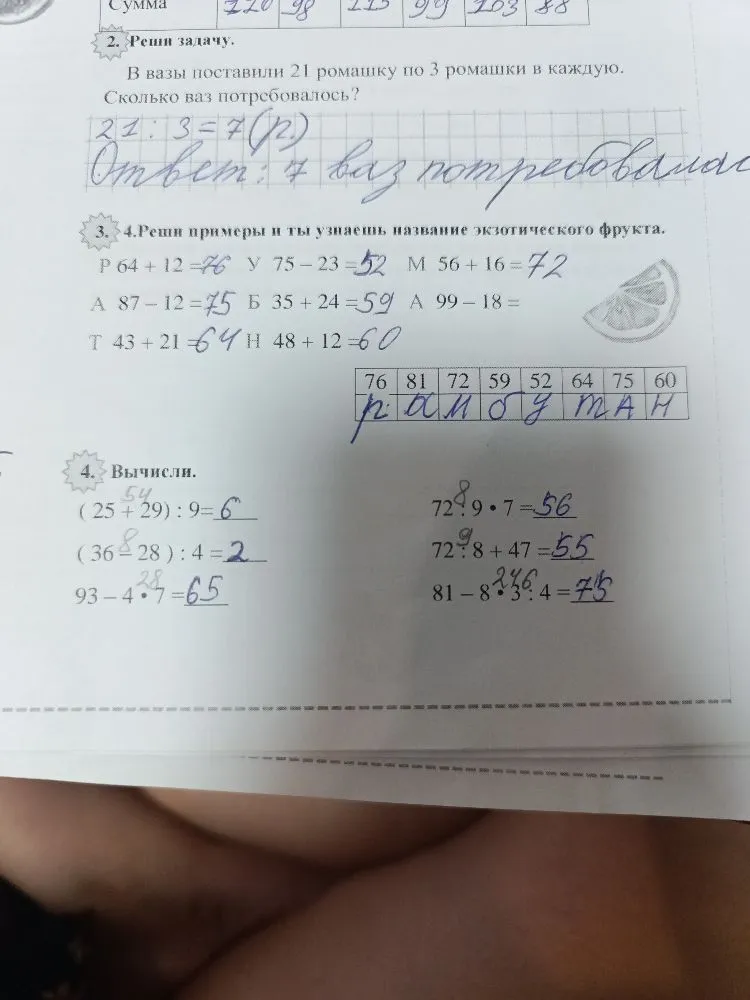 Сумма 98 99 103 88
2. Реши задачу.
В вазы поставили 21 ромашку по 3 ромашки в каждую.
Сколько ваз потребовалось?
21 : 3 = 7 (р.)
Ответ: 7 ваз потребовалас
3. 4.Реши примеры и ты узнаешь название экзотического фрукта.
Р 64 + 12 =76 У 75 – 23 =52 М 56 + 16 =72
А 87 – 12 =75 Б 35 + 24 =59 А 99 – 18 =
Т 43 + 21 =64 Н 48 + 12 =60
76 81 72 59 52 64 75 60
р а м б у т А Н
4. Вычисли.
54 8
( 25 + 29) : 9= 6 72 : 9 • 7 =56
8 9
( 36 – 28 ) : 4 = 2 72 : 8 + 47 =55
28 24 6
93 – 4 • 7 =65 81 – 8 • 3 : 4 =75